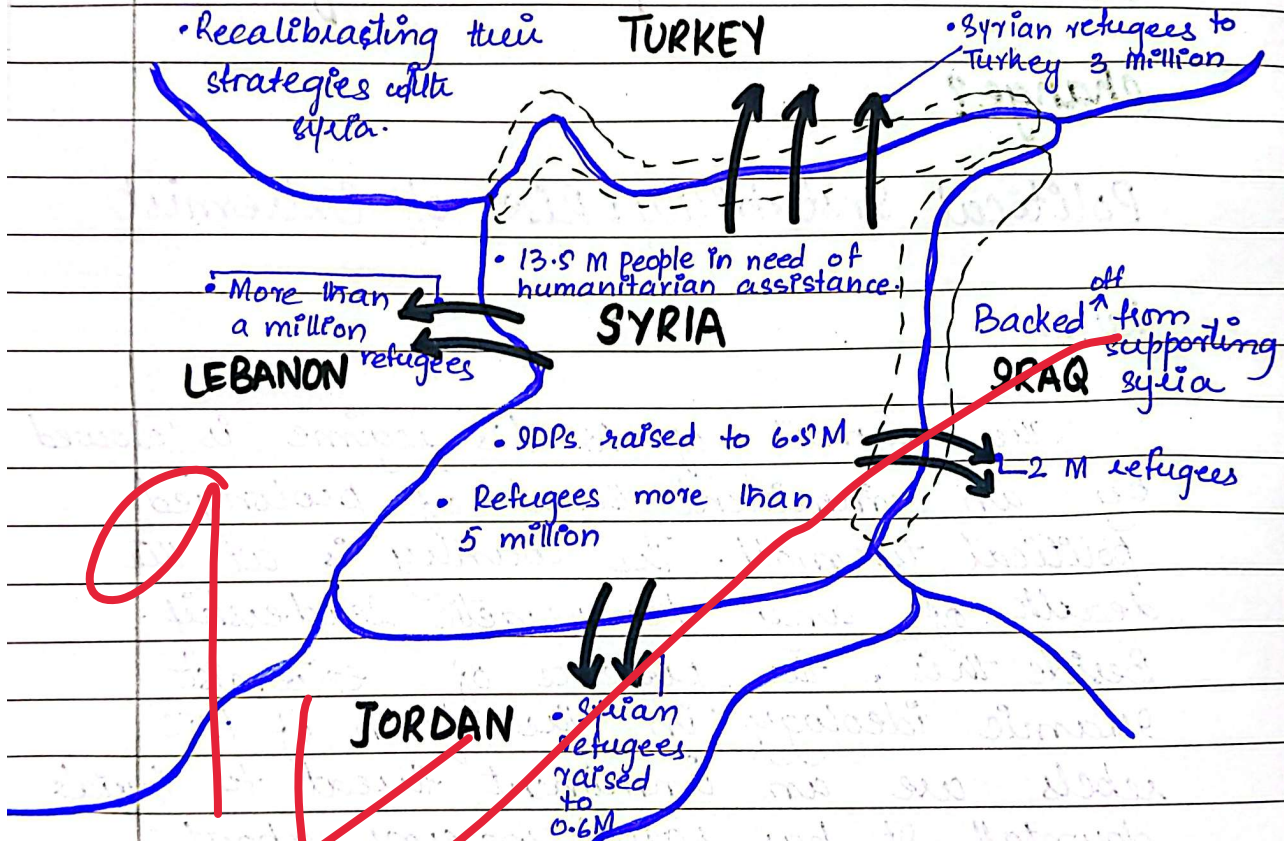 • Recalibrating their
strategies with
syria.
TURKEY
• Syrian refugees to
Turkey 3 million
• 13.5 M people in need of
humanitarian assistance.
• More than
a million
refugees
LEBANON
SYRIA
Backed off from
supporting
syria
IRAQ
• IDPs raised to 6.5M
2 M refugees
• Refugees more than
5 million
JORDAN
• Syrian
refugees
raised
to
0.6M